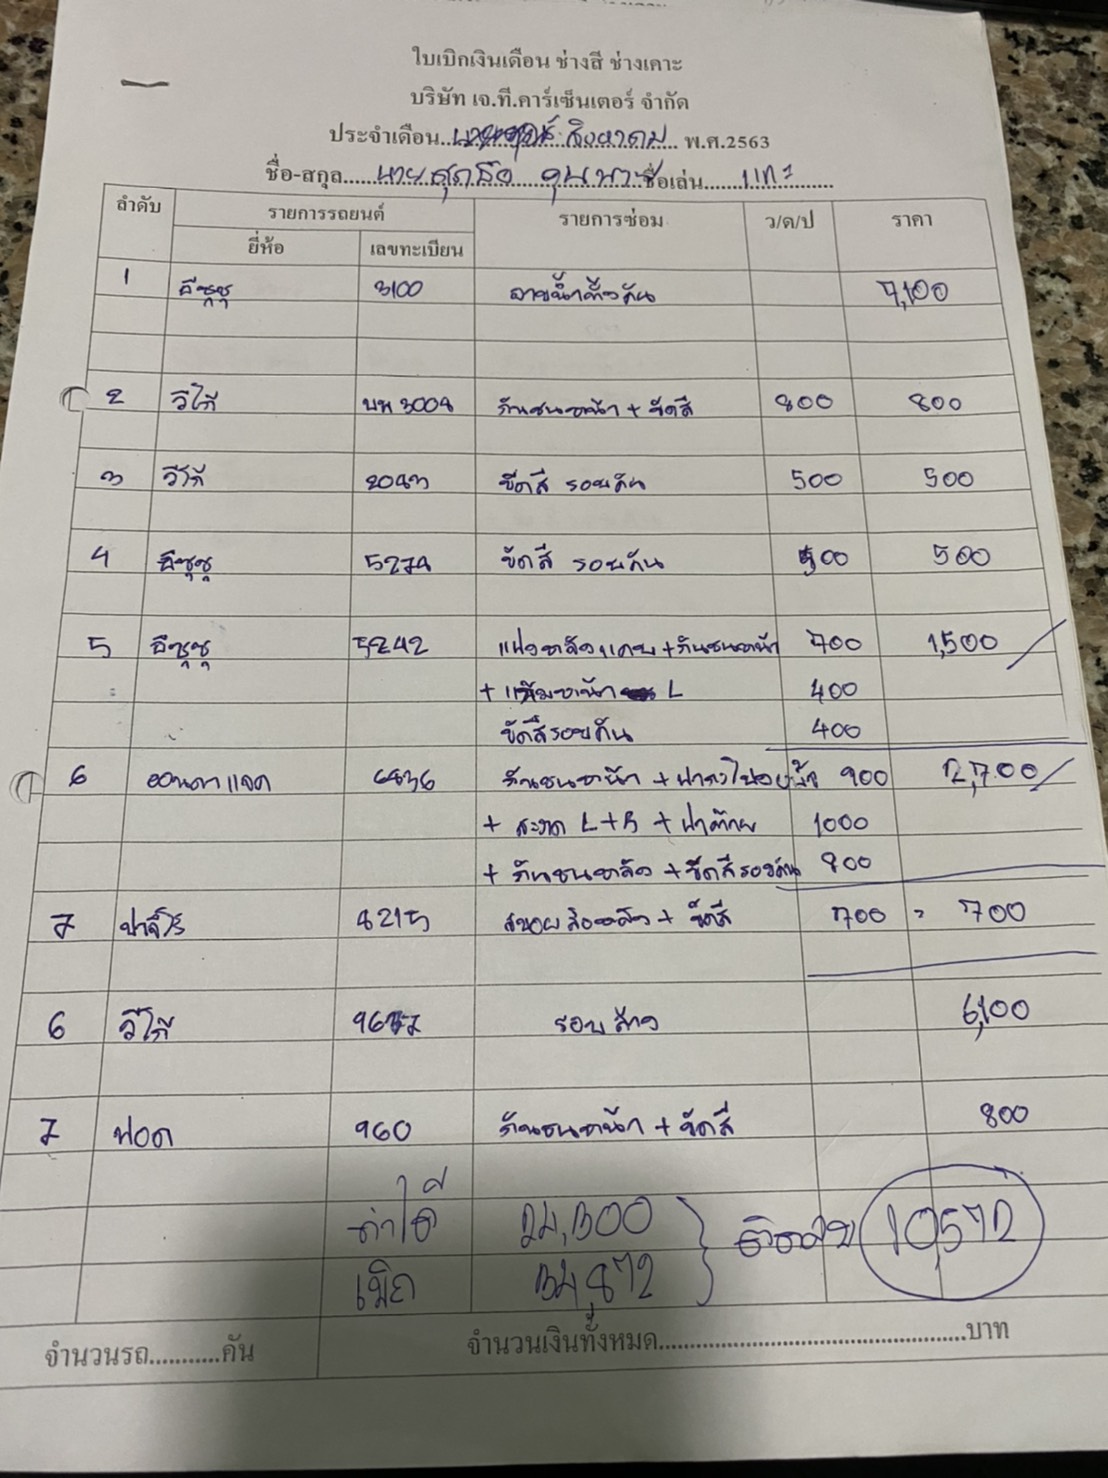 ใบเบิกเงินเดือน ช่างสี ช่างเคาะ
บริษัท เจ.ที.คาร์เซ็นเตอร์ จำกัด
ประจำเดือน.. สิงหาคม พ.ศ.2563
ชื่อ-สกุล..... นาย ชื่อเล่น...... แกะ
ลำดับ รายการรถยนต์ รายการซ่อม ว/ด/ป ราคา
ยี่ห้อ เลขทะเบียน
1 อีซูซุ 3100 7,100
2 วีโก้ 3004 กันชนหน้า + ขัดสี 800 800
3 วีโก้ ขัดสี รอบคัน 500 500
4 อีซูซุ 5274 ขัดสี รอบคัน 500 500
5 อีซูซุ 5242 + กันชนหน้า 700 1,500
+ L 400
ขัดสีรอบคัน 400
6 ฮอนดาแจด 6836 กันชนหน้า + 900 2,700
+ L+R + ฝาท้าย 1000
+ กันชนหลัง + ขัดสีรอบคัน 800
7 ปาจีโร่ 8215 + ขัดสี 700 = 700
6 วีโก้ รอบคัน 6,100
7 ฟอด 960 กันชนหน้า + ขัดสี 800
ทำได้ 24,300
เบิก 34,872
ติดลบ 10,572
จำนวนรถ...........คัน จำนวนเงินทั้งหมด..............................................บาท